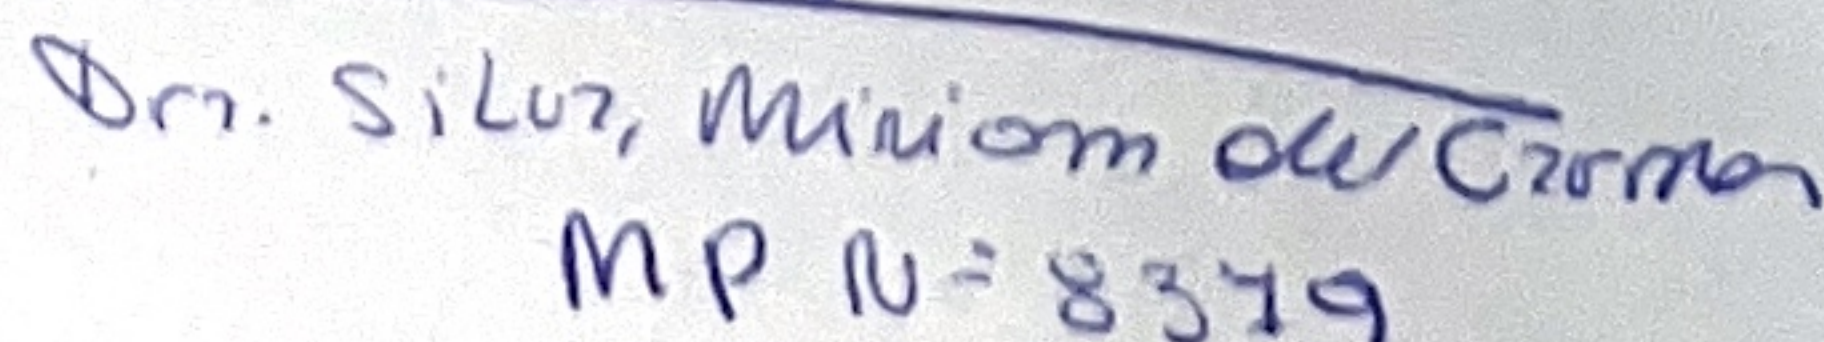 Dra. Silva, Miriam del Carmen
MP N= 8379